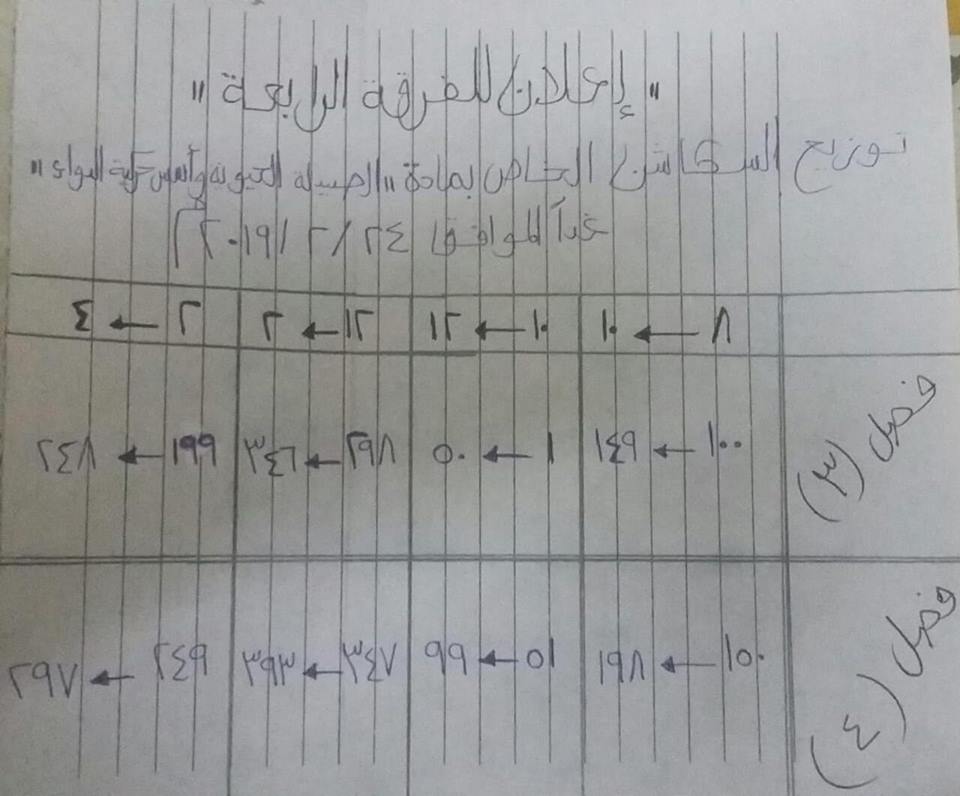 " إعلان للفرقة الرابعة "
توزيع السكاشن الخاص بمادة "الصيدله الحيوية وأسس حركية الدواء"
غداً الموافق ٢٤/٢/٢٠١٩
٨ ← ١٠ ١٠ ← ١٢ ١٢ ← ٢ ٢ ← ٤
فصل (٣) ١٠٠ ← ١٤٩ ١ ← ٥٠ ٢٩٨ ← ٣٤٦ ١٩٩ ← ٢٤٨
فصل (٤) ١٥٠ ← ١٩٨ ٥١ ← ٩٩ ٣٤٧ ← ٣٩٣ ٢٤٩ ← ٢٩٧